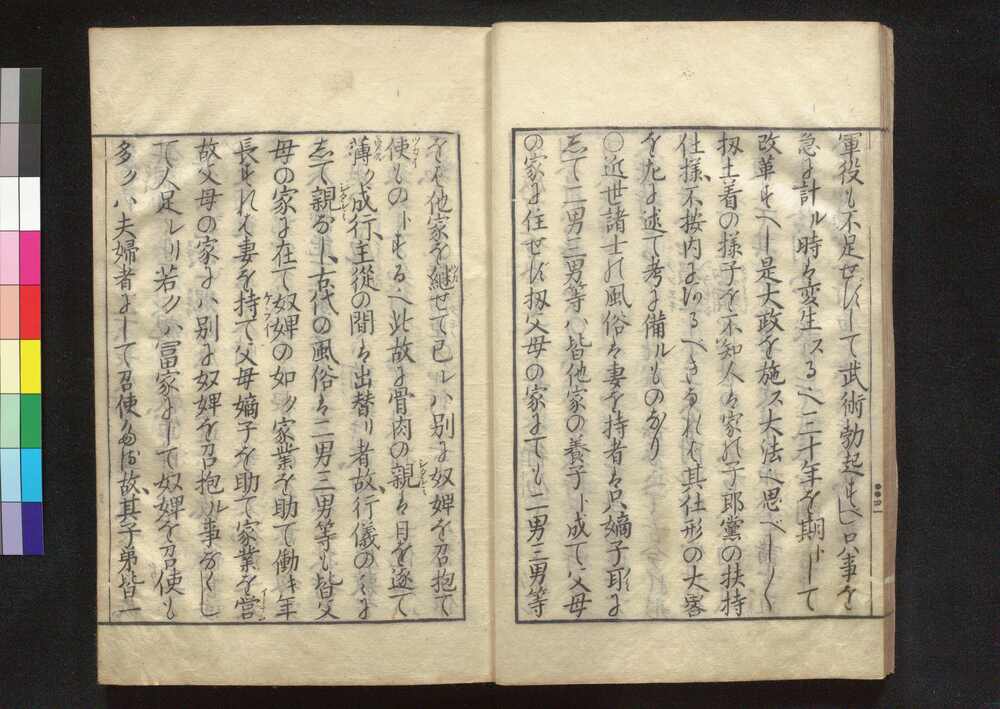 軍役も不足せずして武術勃起すべし只事を
急に計ル時は変生スるへ三十年を期トして
改革すへし是大政を施ス大法へ思べし〱
扨土着の様子を不知人は家の子郎黨の扶持
仕様不按内にあるべきなれば其仕形の大畧
を左に述て考に備ルものなり
〇近世諸士の風俗は妻を持者は只嫡子耳に
して二男三男等ハ皆他家の養子ト成て父母
の家に住せず扨父母の家にても二男三男等
をば他家を継せて已レハ別に奴婢を召抱て
使ものトするへ此故に骨肉の親は月を逐て
薄ク成行主從の間は出替リ者故行儀のミに
して親なし古代の風俗は二男三男等も皆父
母の家に在て奴婢の如ク家業を助て働キ年
長ずれば妻を持て父母嫡子を助て家業を営
故父母の家にハ別に奴婢を召抱ル事なくし
て人足レリ若クハ冨家にして奴婢を召使も
多クハ夫婦者にして召使故其子弟皆一